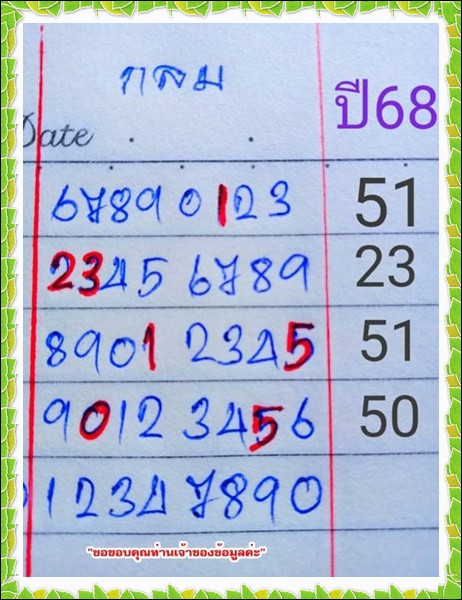 กลม
ปี68
Date
67890123 51
23456789 23
89012345 51
90123456 50
12347890
"ขอขอบคุณท่านเจ้าของข้อมูลค่ะ"